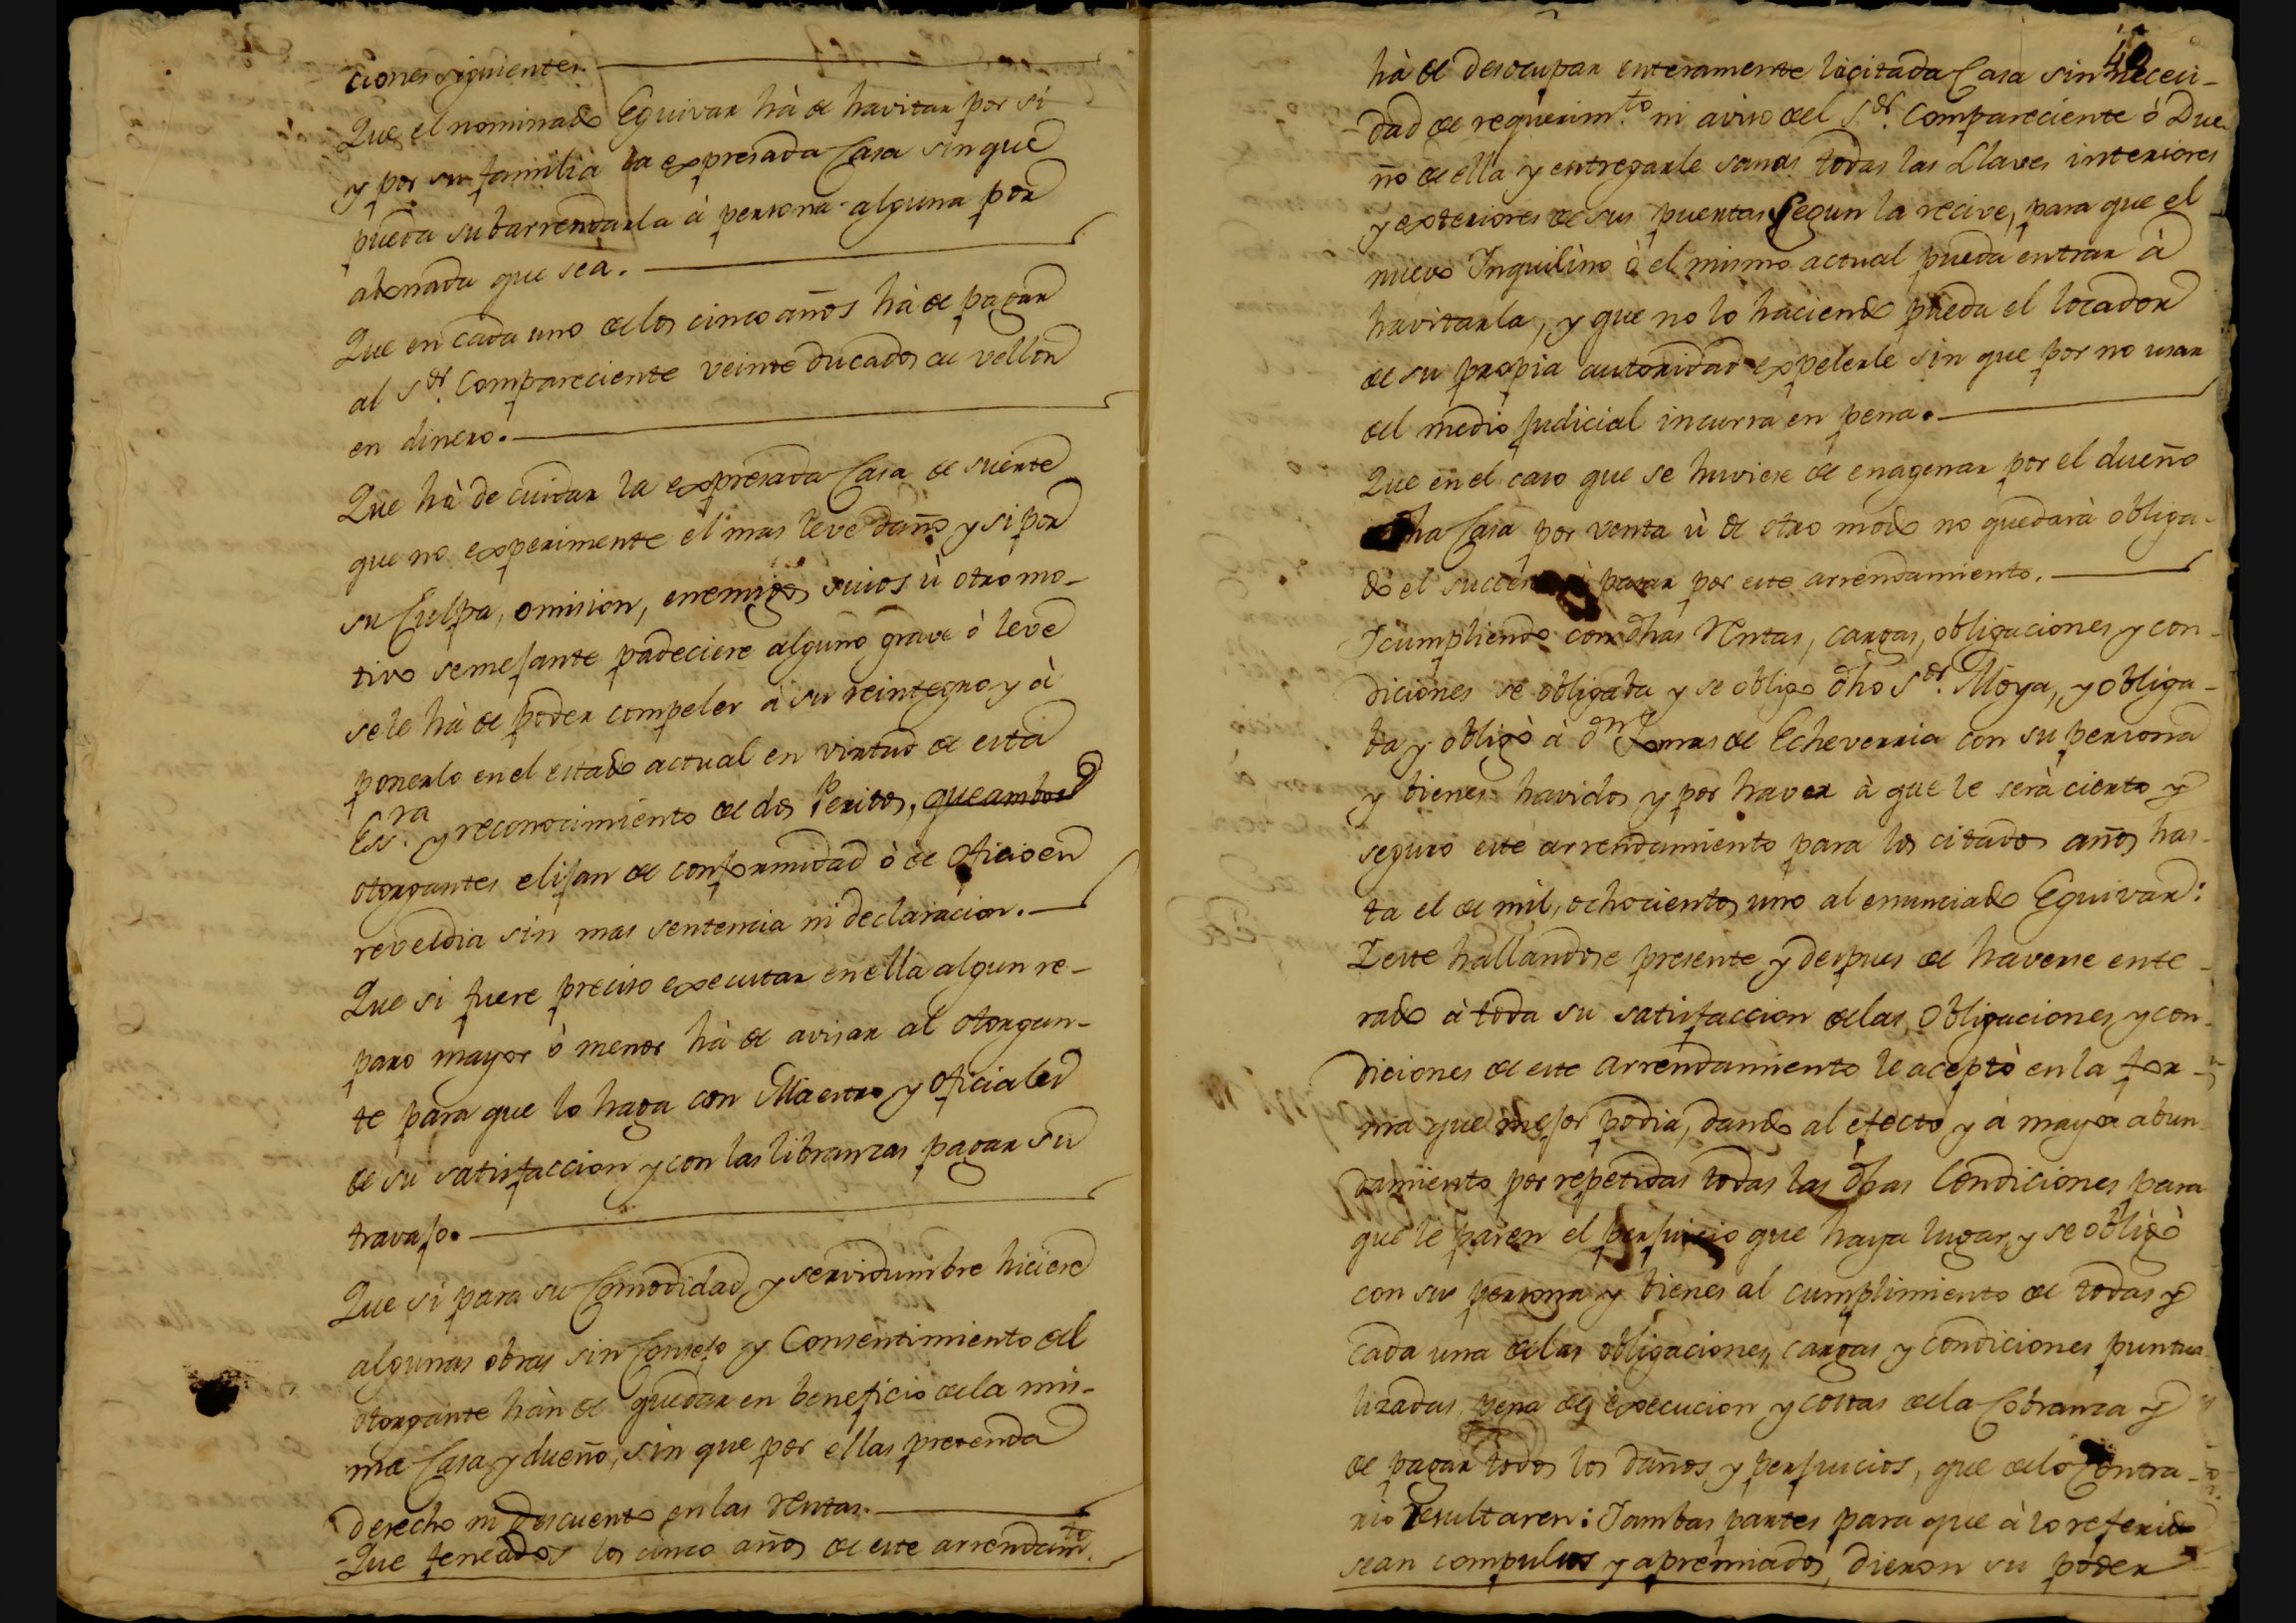 ciones siguientes.
Que el nominado Eguivar hà de havitar por si
y por su familia la expresada Casa sin que
pueda subarrendarla à persona alguna por
abonada que sea.
Que en cada uno de los cinco años hà de pagar
al S.or Compareciente veinte ducados de vellon
en dinero.
Que hà de cuidar la expresada Casa de suerte
que no experimente el mas leve daño y si por
su Culpa, omision, enemigos suios ù otro mo-
tivo semejante padeciere alguno grave ò leve
se le hà de poder compeler à su reintegro y à
ponerlo en el estado actual en virtud de esta
Ess.ra y reconocimiento de dos Peritos, que ambos
otorgantes elijan de conformidad ò de oficio en
reveldia sin mas sentencia ni declaracion.
Que si fuere preciso executar en ella algun re-
paro mayor ò menor hà de avisar al otorgan-
te para que lo haga con Maestro y oficiales
de su satisfaccion y con las libranzas pagar su
travajo.
Que si para su Comodidad, y servidumbre hiciere
algunas obras sin Consejo y Consentimiento del
otorgante hàn de quedar en beneficio de la mis-
ma Casa y dueño, sin que por ellas pretenda
derecho ni descuento en las Rentas.
Que feneados los cinco años de este arrendam.to
40
hà de desocupar enteramente la citada Casa sin nececi-
dad de requerim.to ni aviso del S.or Compareciente ò Due-
ño de ella y entregarle sanas todas las Llaves interiores
y exteriores de sus puertas segun la recive, para que el
nuevo Inquilino ò el mismo actual pueda entrar à
havitarla, y que no lo haciendo pueda el locador
de su propia autoridad expelerle sin que por no usar
del medio judicial incurra en pena.
Que en el caso que se huviese de enagenar por el dueño
dha Casa por venta ù de otro modo no quedarà obliga-
do el succesor à pasar por este arrendamiento.
I cumpliendo con dhas Rentas, cargas, obligaciones y con-
diciones se obligaba y se obligo dho S.or Moya, y obliga-
ba y obligò à Dn Tomas de Echeverria con su persona
y bienes havidos y por haver à que le serà cierto y
seguro este arrendamiento para los citados años has-
ta el de mil, ochocientos uno al enunciado Eguivar:
I este hallandose presente y despues de haverse ente-
rado à toda su satisfaccion de las obligaciones y con-
diciones de este arrendamiento le aceptò en la for-
ma que mejor podia, dando al efecto y à mayor abun-
damiento por repetidas todas las dhas Condiciones para
que le paren el perjuicio que haya lugar, y se obligò
con su persona y bienes al cumplimiento de todas y
cada una de las obligaciones, cargas y condiciones puntua-
lizadas pena de execucion y costas de la Cobranza y
de pagar todos los daños y perjuicios, que de lo Contra-
rio resultaren: I ambas partes para que à lo referido
sean compulsos y apremiados, dieron su poder